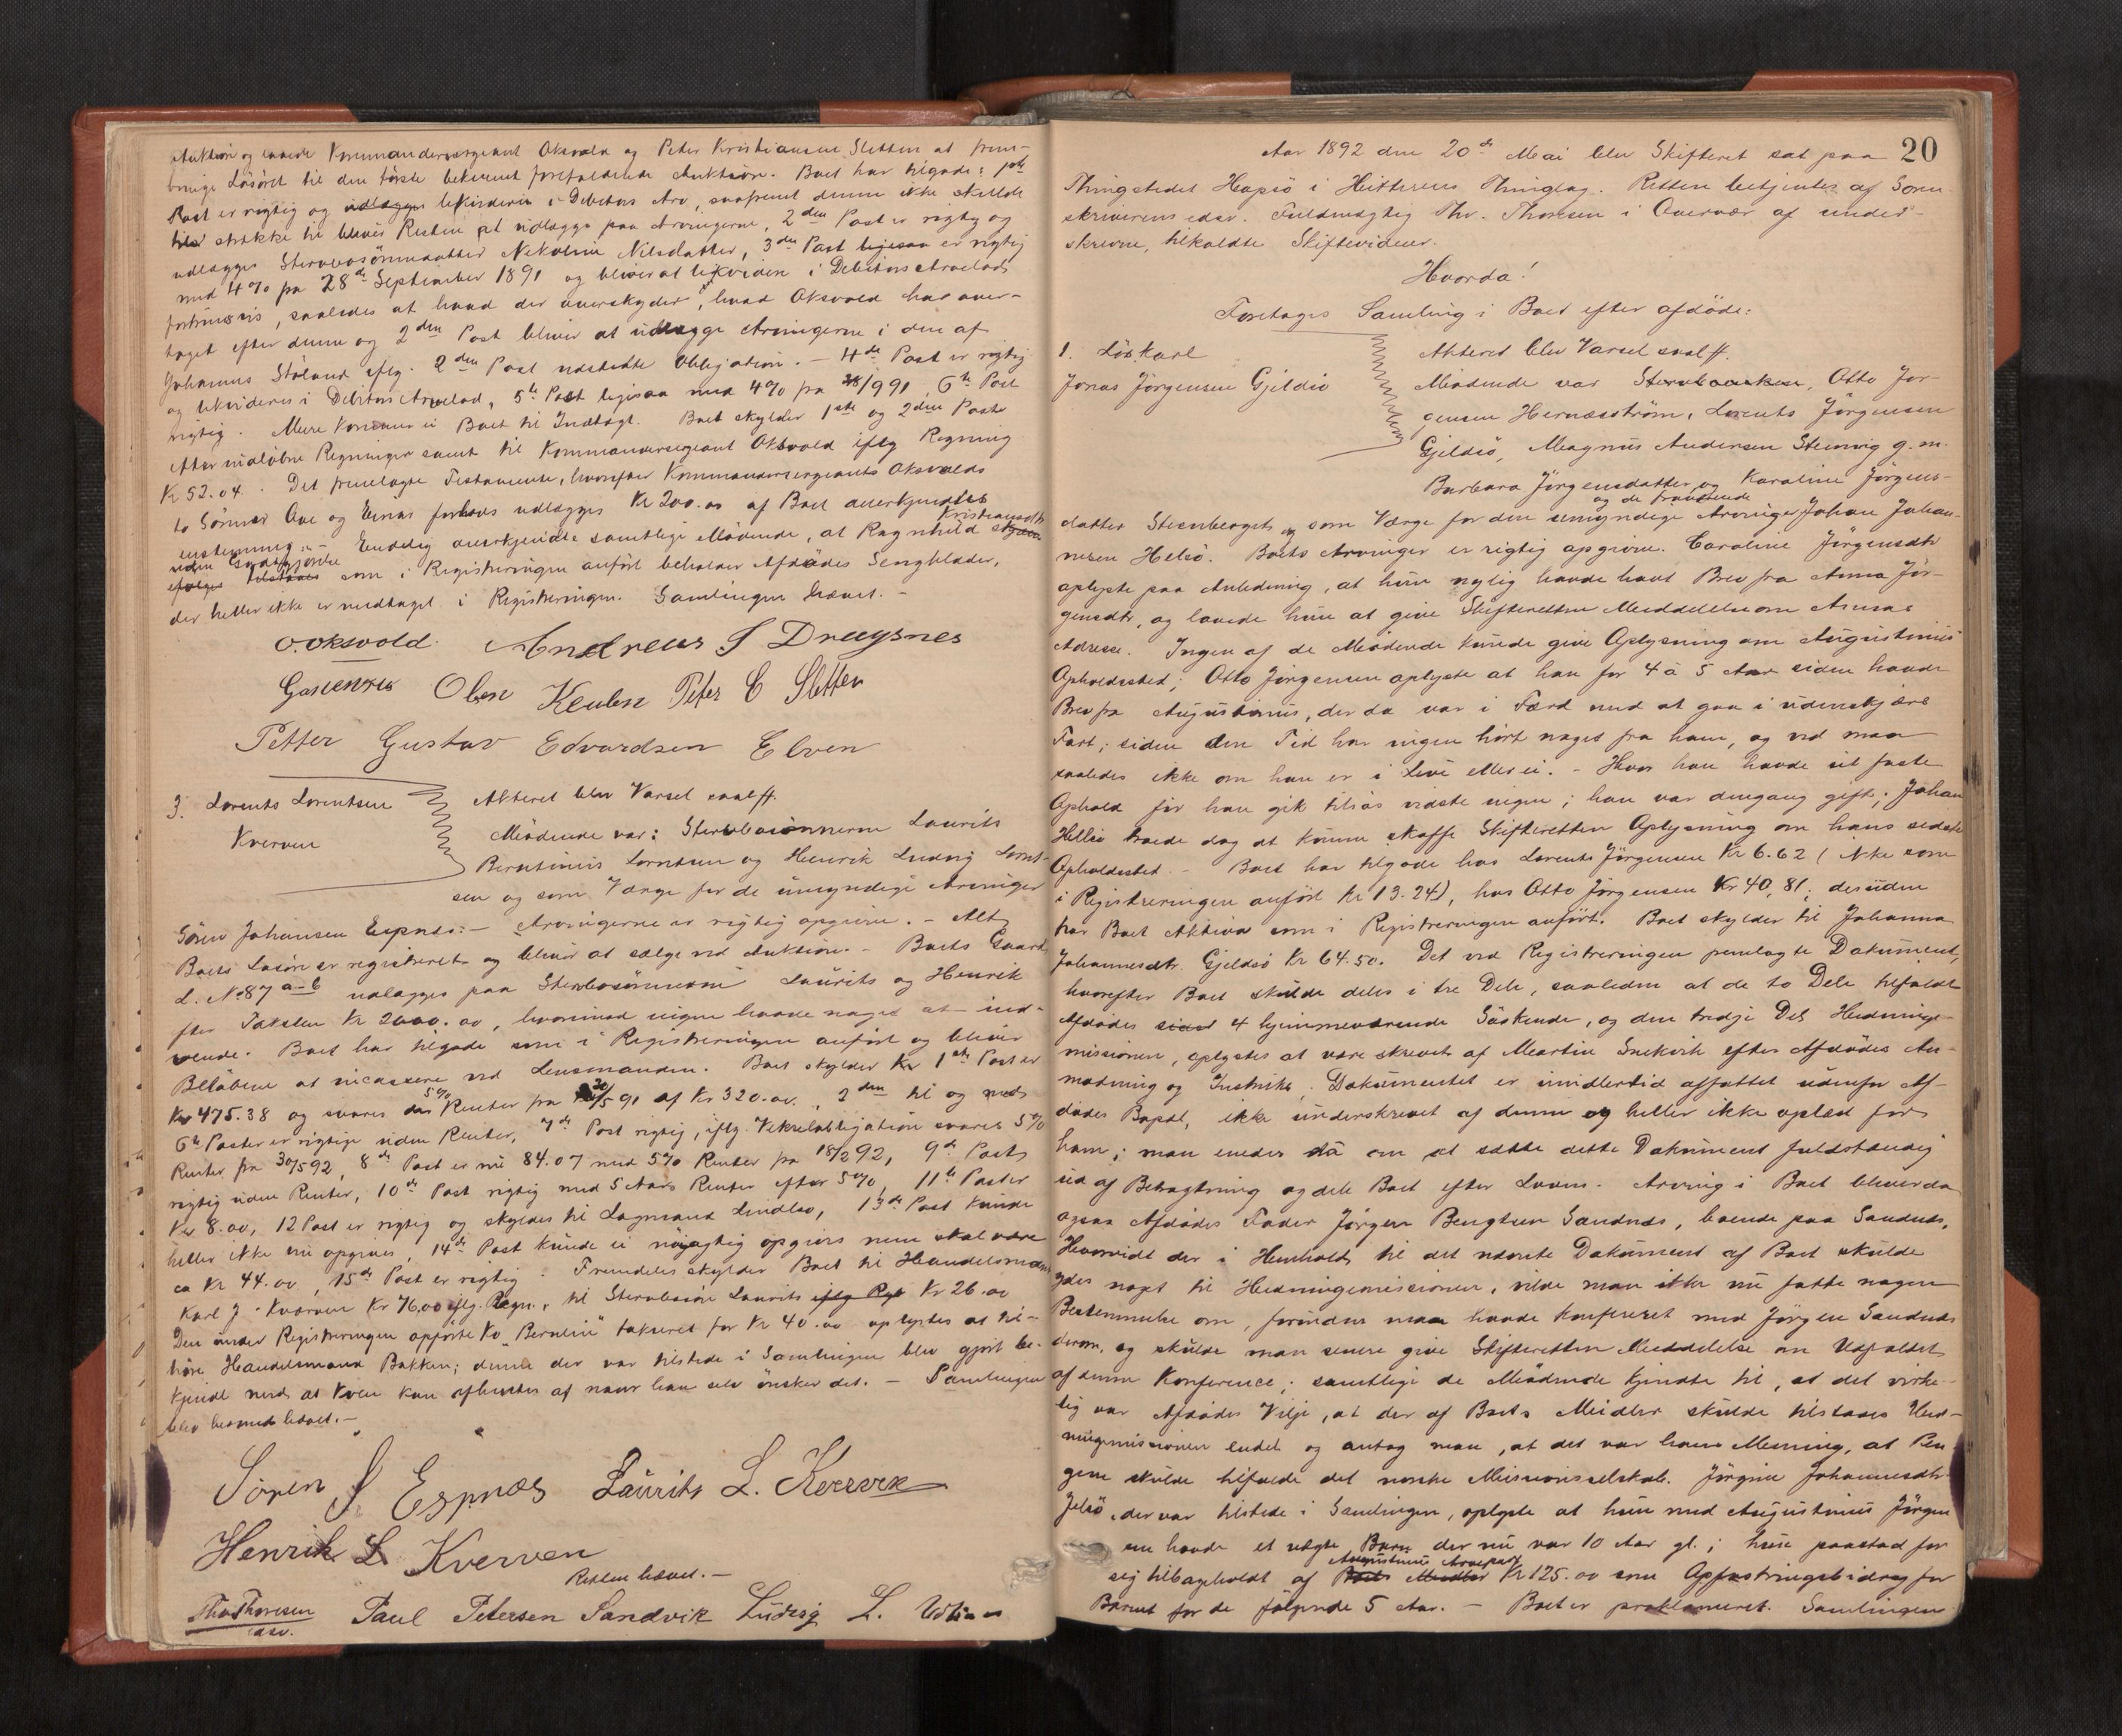 Auktion og lovede Kommandersergeant Oksvold og Peter Kristiansen Sletten at frem-
bringe Løsøret til den første bekvemt forefaldende Auktion. Boet har tilgode: 1ste
Post er rigtig og udlægges likvideres i Debitors Arv, saafremt denne ikke skulde
strække til bliver Resten at udlægge paa Arvingerne, 2den Post er rigtig og
udlægges Sterbosønnedatter Nikoline Nilsdatter, 3die Post ligesaa er rigtig
med 4% fra 28de September 1891 og bliver at likvidere i Debitors Arvelod
fortrinsvis, saaledes at hvad der overskyder, hvad Oksvold har over-
taget efter denne og 2den Post bliver at udlægge Arvingerne i den af
Johannes Støland iflg. 2den Post udstedte Obligation. – 4de Post er rigtig
og likvideres i Debitors Arvelod, 5te Post ligesaa med 4% fra 28/9 91, 6te Post
rigtig. Mere kommer ei Boet til Indtægt. Boet skylder 1ste og 2den Post
efter indløbne Regninger samt til Kommandersergeant Oksvold iflg Regning
Kr 52.04. Det fremlagte Testamente, hvorefter Kommandersergeant Oksvolds
to Sønner Ove og Einar forlods udlægges Kr 200.00 af Boet anerkjendtes
enstemmig. – Endelig anerkjendte samtlige Mødende, at Ragnhild Kristiansdtr
uden Godtgjørelse som i Registreringen anført beholder Afdødes Sengklæder,
der heller ikke er medtaget i Registreringen. Samlingen hævet. –
O. Oksvold Andreas S Draysnes
Olsen Peter C Sletten
Petter Gustav Edvardsen Elven
3. Lorents Lorentsen
Kverven
Akteret blev Varsel saalt.
Mødende var: Sterbosønnerne Laurits
Berntinius Lorentsen og Henrik Ludvig Lorent-
sen og som Værge for de umyndige Arvinger
Søren Johansen Espnæs. – Arvingerne er rigtig opgivne. – Alt
Boets Løsøre er registreret og bliver at sælge ved Auktion. – Boets Gaard
L. No 87 a-b udlægges paa Sterbosønnerne Laurits og Henrik
for Taksten Kr 2000.00, hvorimod ingen havde noget at ind-
vende. Boet har tilgode som i Registreringen anført og bliver
Beløbene at incassere ved Lensmanden. Boet skylder Kr 1ste Post er
Kr 475.38 og svares 5% Renter fra 30/5 91 af Kr 320.00, 2den til og med
6te Poster er rigtige uden Renter, 7de Post rigtig, iflg. Vekselobligation svares 5%
Renter fra 30/5 92, 8de Post er nu 84.07 med 5% Renter fra 18/2 92, 9de Post
rigtig uden Renter, 10de Post rigtig med 5 Aars Renter efter 5%, 11te Post er
Kr 8.00, 12 Post er rigtig og skyldes til Lagmand Lindløv, 13de Post kunde
heller ikke nu opgives, 14de Post kunde ei nøiagtig opgives men skal være
ca Kr 44.00, 15de Post er rigtig. Fremdeles skylder Boet til Handelsmand
Karl J. Kverven Kr 76.00 iflg. Regn., til Sterbosøn Laurits iflg Rgn Kr 26.00
Den under Registreringen opførte Ko "Bernline" takseret for Kr 40.00 oplystes at til-
høre Handelsmand Bakken; denne der var tilstede i Samlingen blev gjort be-
kjendt med at Koen kan afhentes af naar han selv ønsker det. – Samlingen
blev hermed hævet. –
Søren J Espnæs Laurits L. Kverven
Henrik L Kverven
Retten hævet. –
Thv Thoresen
Paul Petersen Sandvik Ludvig L.
20
Aar 1892 den 20de Mai blev Skifteret sat paa
Thingstedet Hopsjø i Hitterens Thinglag. Retten betjentes af Soren-
skriverens edsv. Fuldmægtig Thv. Thoresen i Overvær af under-
skrevne, tilkaldte Skiftevidner.
Hvorda!
Foretoges Samling i Boet efter afdøde:
1. Løskarl
Jonas Jørgensen Gjeldsø
Akteret blev Varsel saalt.
Mødende var Sterbosøsken, Otto Jør-
gensen Hernæsstrøm, Lorents Jørgensen
Gjeldsø, Magnus Andersen Steinvig g.m.
Barbara Jørgensdatter og Karoline Jørgens-
datter Steenberget og som Værge for den umyndige og de fraværende Arvinge Johan Johan-
nesen Helsø. Boets Arvinger er rigtig opgivne. Caroline Jørgensdtr
oplyste paa Anledning, at hun nylig havde havt Brev fra Anna Jør-
gensdtr, og lovede hun at give Skifteretten Meddelelse om Annas
Adresse. Ingen af de Mødende kunde give Oplysning om Augustinus
Opholdssted; Otto Jørgensen oplyste at han for 4 à 5 Aar siden havde
Brev fra Augustinus, der da var i Færd med at gaa i udenskjærs
Fart; siden den Tid har ingen hørt noget fra ham, og ved man
saaledes ikke om han er i Live eller ei. – Hvor han havde sit faste
Ophold før han gik tilsøs vidste ingen; han var dengang gift; Johan
Helsø troede dog at kunne skaffe Skifteretten Oplysning om hans sidste
Opholdssted. – Boet har tilgode hos Lorents Jørgensen Kr 6.62 (ikke som
i Registreringen anført Kr 13.24), hos Otto Jørgensen Kr 40,81; desuden
har Boet Aktiva som i Registreringen anført. Boet skylder til Johanna
Johannesdtr. Gjeldsø Kr 64.50. Det ved Registreringen fremlagte Dokument,
hvorefter Boet skulde deles i tre Dele, saaledes at de to Dele tilfaldt
Afdødes 4 hjemmeværende Søskende, og den tredje Del Hedninge-
missionen, oplystes at være skrevet af Martin Snekvik efter Afdødes An-
modning og Instruks. Dokumentet er imidlertid affattet udenfor Af-
dødes Bopæl, ikke underskrevet af denne og heller ikke oplæst for
ham; man enedes da om at sætte dette Dokument fuldstændig
ud af Betragtning og dele Boet efter Loven. Arving i Boet bliver da
ogsaa Afdødes Fader Jørgen Bengtsen Sandnæs, boende paa Sandnæs.
Hvorvidt der i Henhold til det nævnte Dokument af Boet skulde
ydes noget til Hedningemissionen, vilde man ikke nu fatte nogen
Bestemmelse om, forinden man havde konfereret med Jørgen Sandnæs
derom, og skulde man senere give Skifteretten Meddelelse om Udfaldet
af denne Konference; samtlige de Mødende kjendte til, at det virke-
lig var Afdødes Vilje, at der af Boets Midler skulde tilstaaes Hed-
ningemissionen endel og antog man, at det var hans Mening, at Pen-
gene skulde tilfalde det norske Missionsselskab. Jørgine Johannesdtr
Jelsø, der var tilstede i Samlingen, oplyste at hun med Augustinus Jørgen-
sen havde et uægte Barn der nu var 10 Aar gl.; hun paastod for
sig tilbageholdt af Boets Midler Augustinus Arvepart Kr 125.00 som Opfostringsbidrag for
Barnet for de følgende 5 Aar. – Boet er proklameret. Samlingen